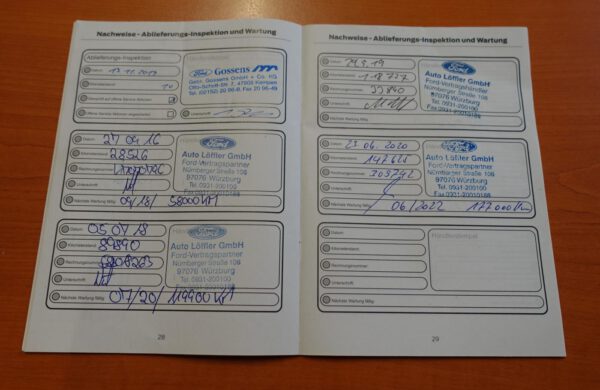 Nachweise - Ablieferungs-Inspektion und Wartung
Ablieferungs-Inspektion
Datum: 13.11.2013
Kilometerstand: 10
Geprüft auf offene Service-Aktionen
Offene Service-Aktionen abgearbeitet
Unterschrift:
Ford Gossens
Gebr. Gossens GmbH + Co. KG
Otto-Schott-Str. 7, 47906 Kempen
Datum: 27 04 16
Kilometerstand: 28526
Rechnungsnummer:
Unterschrift:
Nächste Wartung fällig: 09/18/ 58000 KM
Ford
Auto Löffler GmbH
Ford-Vertragspartner
Nürnberger Straße 108
97076 Würzburg
Tel. 0931-200100
Datum: 05 07 18
Kilometerstand: 89890
Rechnungsnummer:
Unterschrift:
Nächste Wartung fällig: 07/20/ 119900 KM
Ford
Auto Löffler GmbH
Ford-Vertragspartner
Nürnberger Straße 108
97076 Würzburg
Tel. 0931-200100
28
Nachweise - Ablieferungs-Inspektion und Wartung
Datum:
Kilometerstand:
Rechnungsnummer:
Unterschrift:
Nächste Wartung fällig:
Ford
Auto Löffler GmbH
Ford-Vertragshändler
Nürnberger Straße 108
97076 Würzburg
Datum: 23 06. 2020
Kilometerstand: 147625
Rechnungsnummer: 305742
Unterschrift:
Nächste Wartung fällig: 06/2022 177000 Km
Ford
Auto Löffler GmbH
Ford-Vertragspartner
Nürnberger Straße 108
97076 Würzburg
Tel. 0931-200100
Datum:
Kilometerstand:
Rechnungsnummer:
Unterschrift:
Nächste Wartung fällig:
Händlerstempel
29